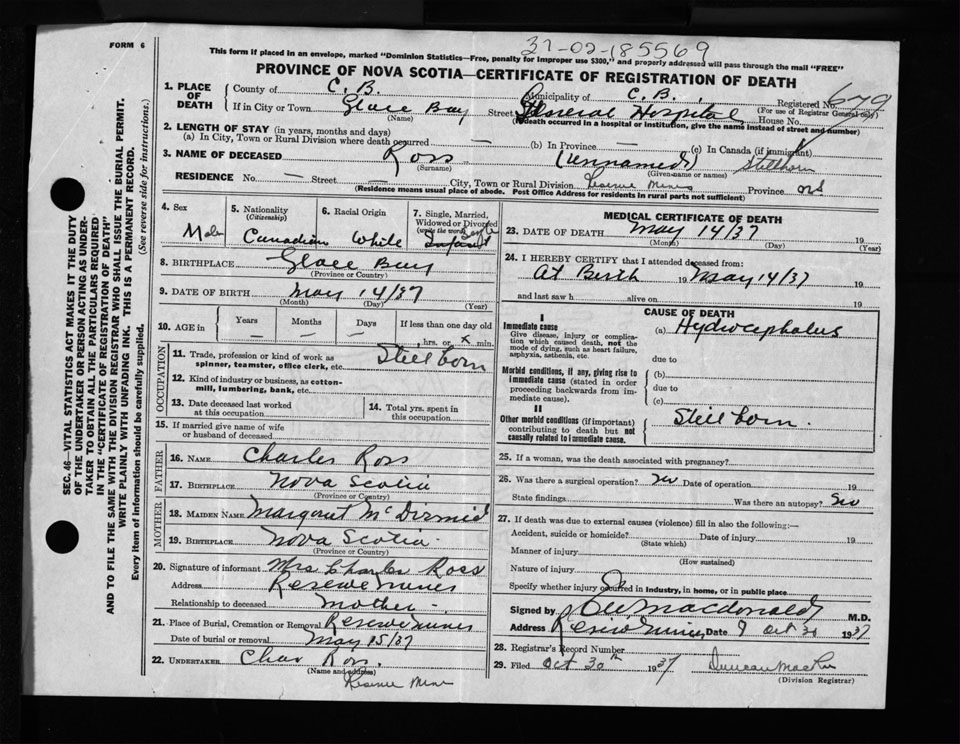 FORM 6
37-02-185569
This form if placed in an envelope, marked "Dominion Statistics—Free, penalty for improper use $300," and properly addressed will pass through the mail "FREE"
PROVINCE OF NOVA SCOTIA—CERTIFICATE OF REGISTRATION OF DEATH
1. PLACE OF DEATH County of C. B. Municipality of C. B. Registered No. 679
(For use of Registrar General only)
If in City or Town Glace Bay Street General Hospital House No.
(Name) (If death occurred in a hospital or institution, give the name instead of street and number)
2. LENGTH OF STAY (in years, months and days)
(a) In City, Town or Rural Division where death occurred — (b) In Province — (c) In Canada (if immigrant)
3. NAME OF DECEASED Ross (unnamed) Stillborn
(Surname) (Given name or names)
RESIDENCE No. — Street — City, Town or Rural Division Reserve Mines Province NS
(Residence means usual place of abode. Post Office Address for residents in rural parts not sufficient)
4. Sex Male
5. Nationality (Citizenship) Canadian
6. Racial Origin White
7. Single, Married, Widowed or Divorced (write the word) Single Infant
8. BIRTHPLACE Glace Bay
(Province or Country)
9. DATE OF BIRTH May 14/37
(Month) (Day) (Year)
10. AGE in Years — Months — Days — If less than one day old
hrs. or x min.
OCCUPATION
11. Trade, profession or kind of work as spinner, teamster, office clerk, etc. Still born
12. Kind of industry or business, as cotton-mill, lumbering, bank, etc.
13. Date deceased last worked at this occupation
14. Total yrs. spent in this occupation
15. If married give name of wife or husband of deceased
FATHER
16. NAME Charles Ross
17. BIRTHPLACE Nova Scotia
(Province or Country)
MOTHER
18. MAIDEN NAME Margaret McDirmid
19. BIRTHPLACE Nova Scotia
(Province or Country)
20. Signature of informant Mrs Charles Ross
Address Reserve Mines
Relationship to deceased Mother
21. Place of Burial, Cremation or Removal Reserve Mines
Date of burial or removal May 15/37
22. UNDERTAKER Chas Ross.
(Name and address)
Reserve Mines
MEDICAL CERTIFICATE OF DEATH
23. DATE OF DEATH May 14/37 19
(Month) (Day) (Year)
24. I HEREBY CERTIFY that I attended deceased from:
At Birth 19 May 14/37
and last saw h alive on 19
CAUSE OF DEATH
I
Immediate cause
Give disease, injury or complication which caused death, not the mode of dying, such as heart failure, asphyxia, asthenia, etc.
(a) Hydrocephalus
due to
Morbid conditions, if any, giving rise to immediate cause (stated in order proceeding backwards from immediate cause).
(b)
due to
(c)
II
Other morbid conditions (if important) contributing to death but not causally related to immediate cause.
Still born.
25. If a woman, was the death associated with pregnancy?
26. Was there a surgical operation? No Date of operation 19
State findings Was there an autopsy? No
27. If death was due to external causes (violence) fill in also the following:—
Accident, suicide or homicide? Date of injury 19
(State which)
Manner of injury
(How sustained)
Nature of injury
Specify whether injury occurred in industry, in home, or in public place
Signed by Macdonald M.D.
Address Reserve Mines Date Oct 30 1937
28. Registrar's Record Number
29. Filed Oct 30th 1937 Duncan
(Division Registrar)
SEC. 46—VITAL STATISTICS ACT MAKES IT THE DUTY
OF THE UNDERTAKER OR PERSON ACTING AS UNDER-
TAKER TO OBTAIN ALL THE PARTICULARS REQUIRED
IN THE "CERTIFICATE OF REGISTRATION OF DEATH"
AND TO FILE THE SAME WITH THE DIVISION REGISTRAR WHO SHALL ISSUE THE BURIAL PERMIT.
WRITE PLAINLY WITH UNFADING INK. THIS IS A PERMANENT RECORD.
Every item of Information should be carefully supplied.
(See reverse side for instructions.)